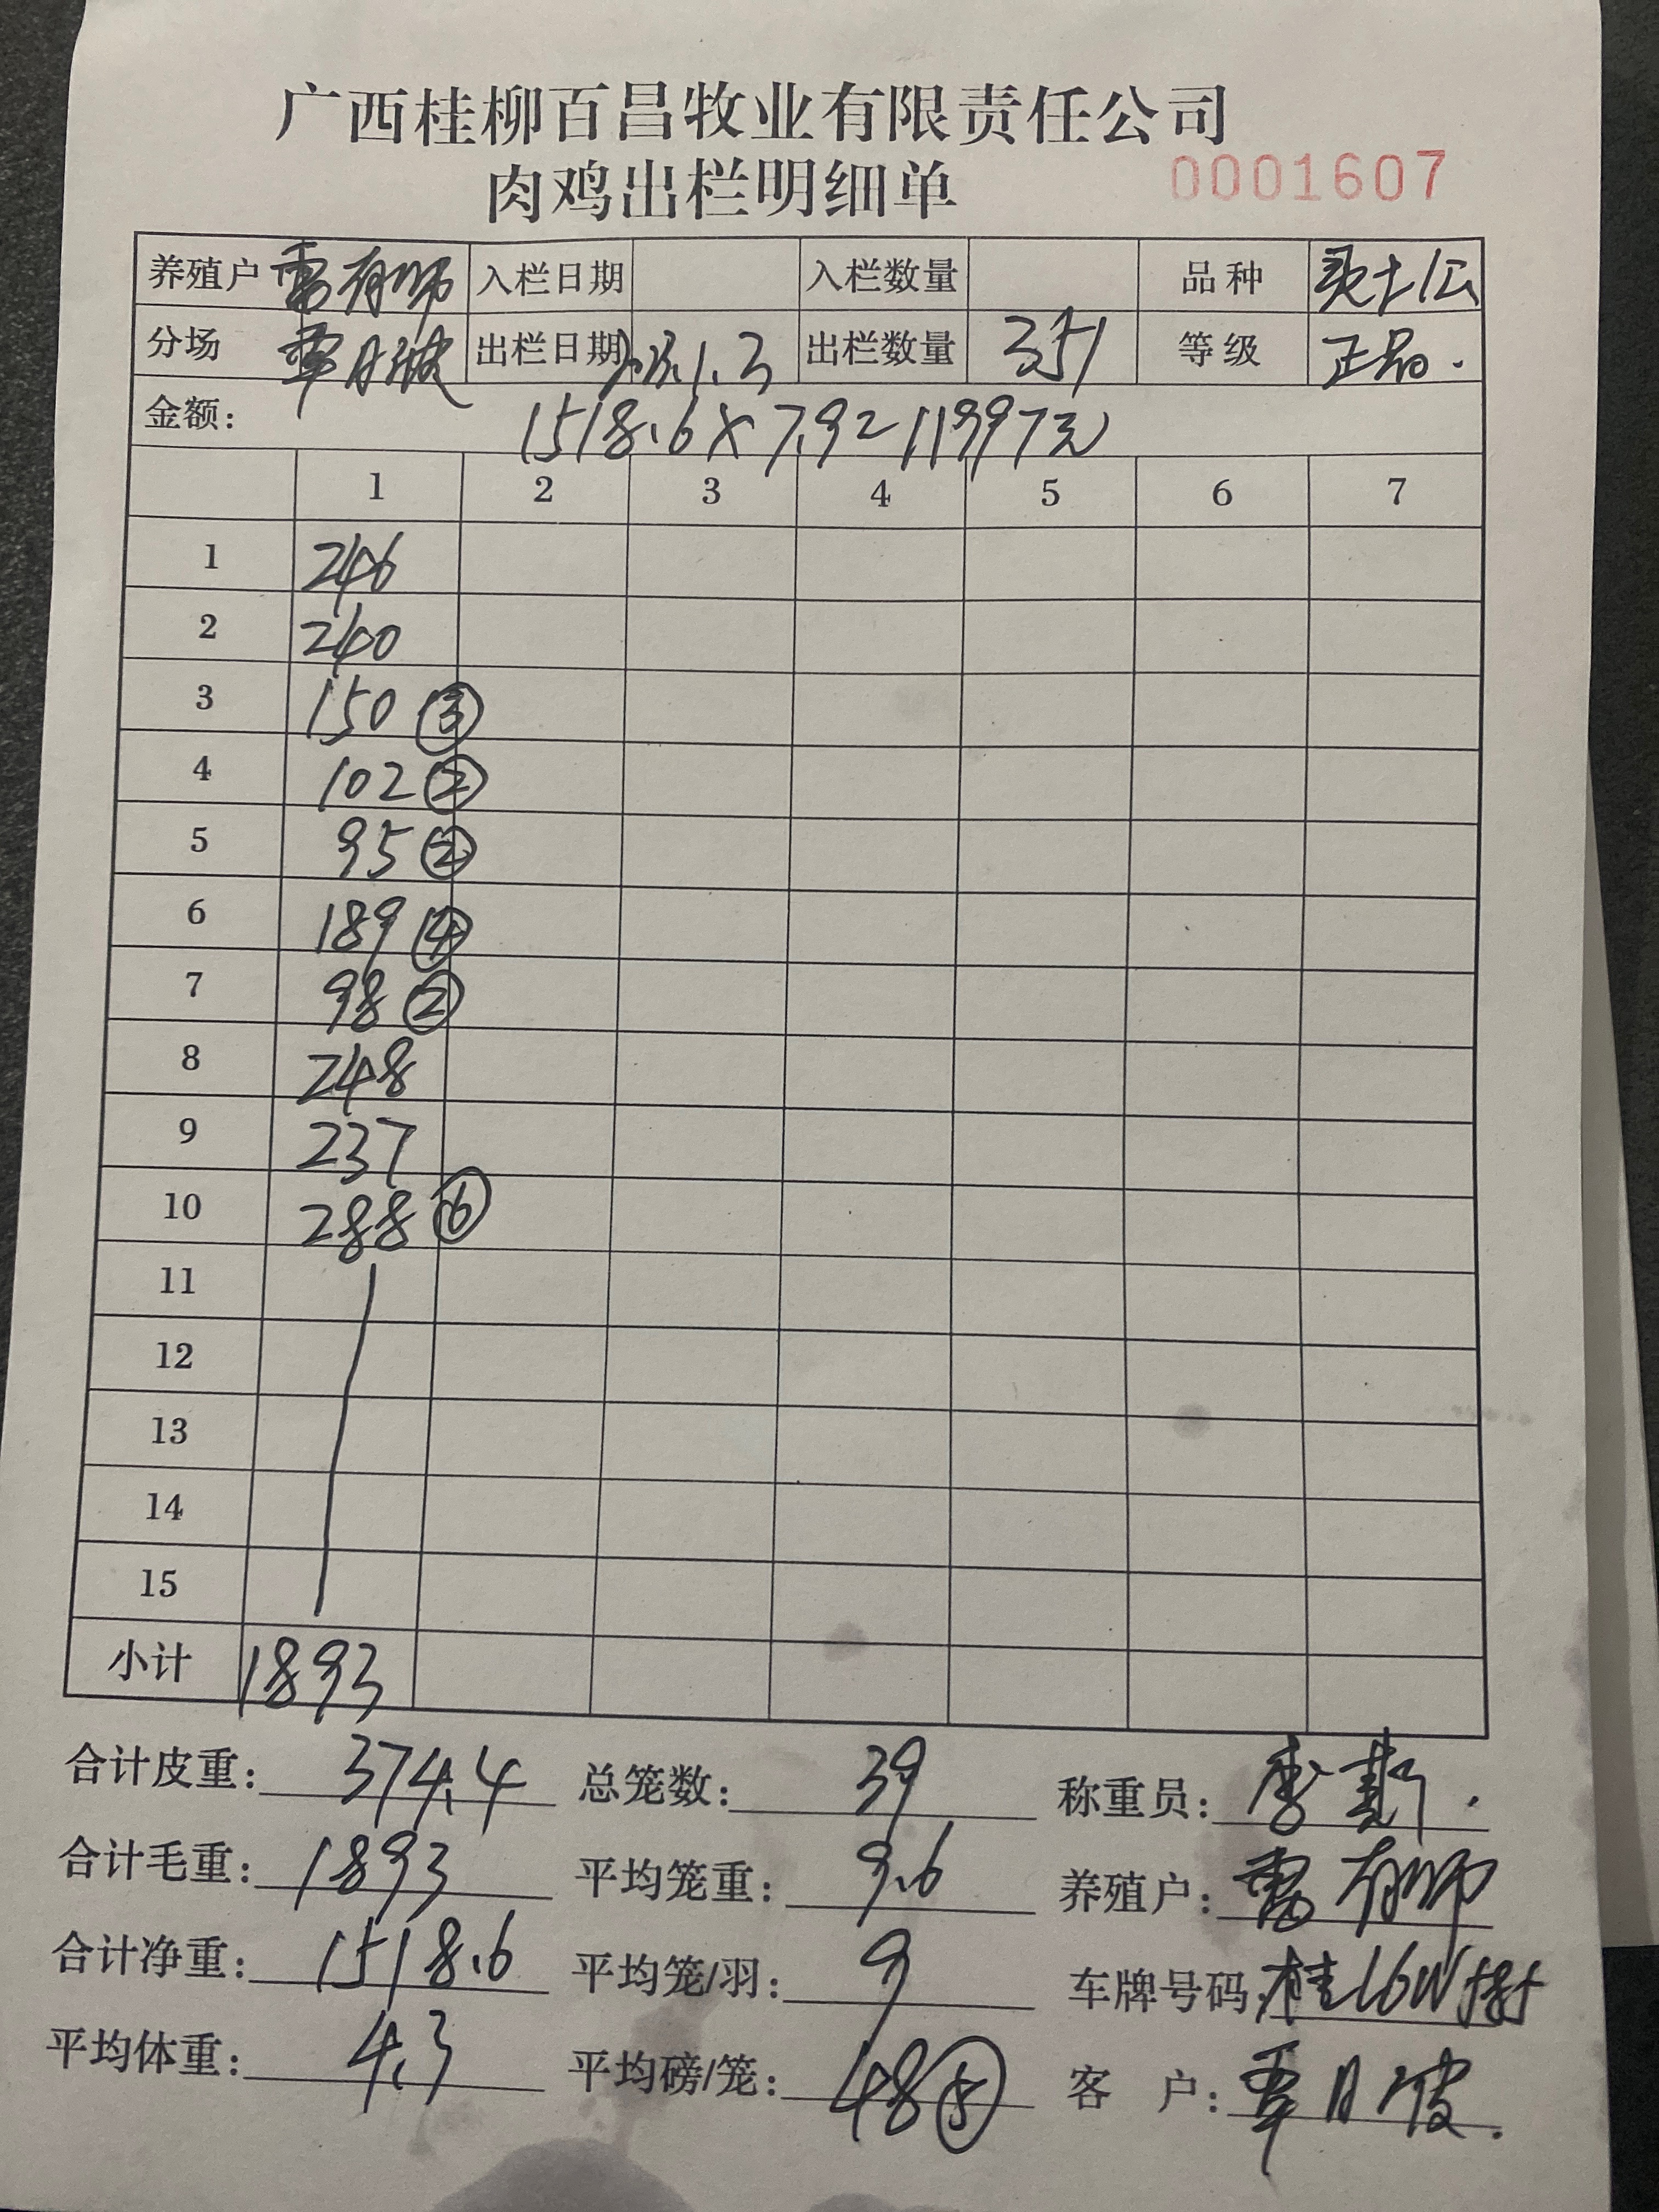 广西桂柳百昌牧业有限责任公司
肉鸡出栏明细单 0001607
养殖户 有师 入栏日期 入栏数量 品种
分场 覃月波 出栏日期 1.3 出栏数量 351 等级 正品.
金额: 1518.6×7.9=11997元
1 2 3 4 5 6 7
1 246
2 240
3 150 ③
4 102 ②
5 95 ②
6 189 ④
7 98 ②
8 248
9 237
10 288 ⑥
11
12
13
14
15
小计 1893
合计皮重: 374.4 总笼数: 39 称重员:
合计毛重: 1893 平均笼重: 9.6 养殖户: 有师
合计净重: 1518.6 平均笼/羽: 9 车牌号码: 桂16W
平均体重: 4.3 平均磅/笼: 48⑤ 客 户: 覃月波.